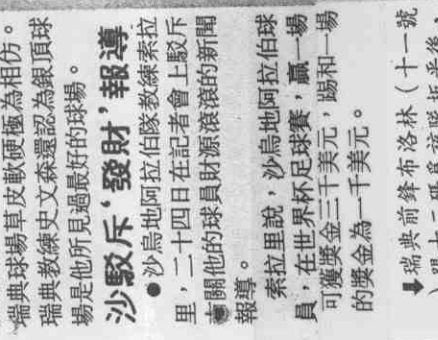 瑞典球場草皮軟硬極為相仿。
瑞典教練史文森還認為銀頂球
場是他所見過最好的球場。
沙駁斥‘發財’報導
●沙烏地阿拉伯隊教練索拉
里，二十四日在記者會上駁斥
有關他的球員財源滾滾的新聞
報導。
索拉里說，沙烏地阿拉伯球
員，在世界杯足球賽，贏一場
可獲獎金三千美元，踢和一場
的獎金為一千美元。
⬇瑞典前鋒布洛林（十一號